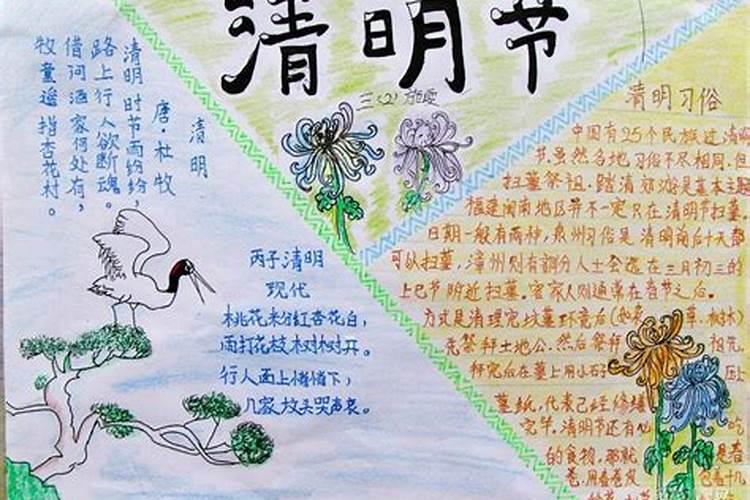 清明节
三(2)
清明
唐·杜牧
清明时节雨纷纷，
路上行人欲断魂。
借问酒家何处有，
牧童遥指杏花村。
丙子清明
现代
桃花粉红杏花白，
雨打花枝树树开。
行人面上情绪下，
几家坟头哭声哀。
清明习俗
中国有25个民族过清明
节,虽然各地习俗不尽相同,但
扫墓祭祖、踏清郊游是基本主题
福建闽南地区并不一定只在清明节扫墓,
日期一般有两种,泉州习俗是清明前后十天都
可以扫墓,漳州则有部分人士会选在三月初三的
上巳节附近扫墓。客家人则通常在春节之后。
方式是清理完坟墓环境后(如杂草、树木)
先祭拜土地公,然后祭拜祖先,
拜完后在墓上用小石 压上
墓纸,代表已经修缮
完毕。清明节还有 吃
的食物,那就 是春
卷,用春卷皮 包着